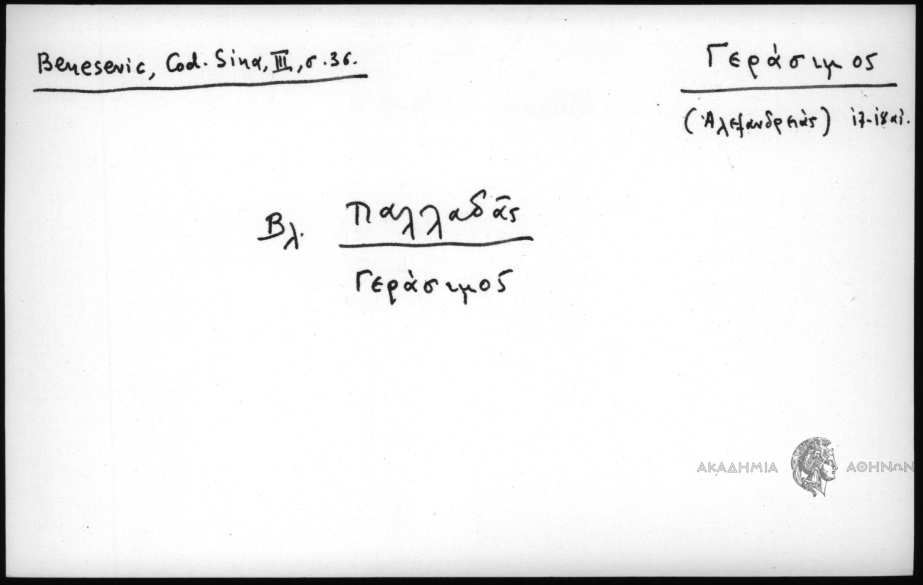 Benesevic, Cod. Sina, III, σ. 36.
Γεράσιμος
(Ἀλεξανδρείας) ιζ-ιη αἰ.
Βλ. Παλλαδᾶς
Γεράσιμος
ΑΚΑΔΗΜΙΑ ΑΘΗΝΩΝ